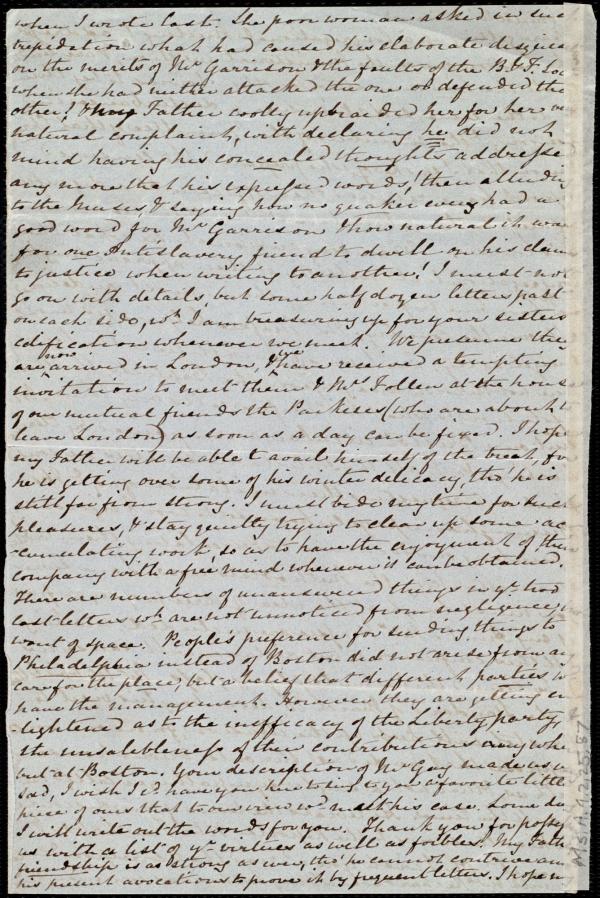 when I wrote last. The poor woman asked in such
trepidation what had caused his elaborate disquis
on the merits of Mr Garrison & the faults of the B. & F. Soc
when she had neither attacked the one or defended the
other! & how Father coolly upbraided her for her
natural complaint, with declaring he did not
mind having his concealed thoughts addressed
any more that his expressed words! then alluding
to the Nurses, & saying how no quaker every had a
good word for Mr Garrison & how natural it was
for one Antislavery friend to dwell on his claims
to justice when writing to another! I must not
go on with details, but some half dozen letters past
on each side, wh I am treasuring up for your sisters
edification whenever we meet. We presume they
are now arrived in London, & we have received a tempting
invitation to meet them & Mrs Follen at the house
of our mutual friends the Parkers (who are about to
leave London) as soon as a day can be fixed. I hope
my Father will be able to avail himself of the treat, for
he is getting over some of his winter delicacy, tho' he is
still far from strong. I must bide my time for such
pleasures, & stay quietly trying to clear up some ac
-cumulating work so as to have the enjoyment of their
company with a free mind whenever it can be obtained.
There are numbers of unanswered things in yr two
last letters wh are not unnoticed from negligence,
want of space. People's preference for sending things to
Philadelphia instead of Boston did not arise from any
care for the place, but a belief that different parties
have the management. However they are getting en
-lightened as to the inefficacy of the Liberty party,
the unsaleableness of their contributions every whe
but at Boston. Your description of Mr Gay made us
sad, I wish I'd have you here to sing to you a favorite little
piece of ours that to our view wd meet his case. Some day
I will write out the words for you. Thank you for
us with a list of yr virtues as well as foibles! My Fath
friendship is as strong as ever, tho' he cannot contrive am
his present avocations to prove it by frequent letters. I hope
MS.A.9.2.25.57